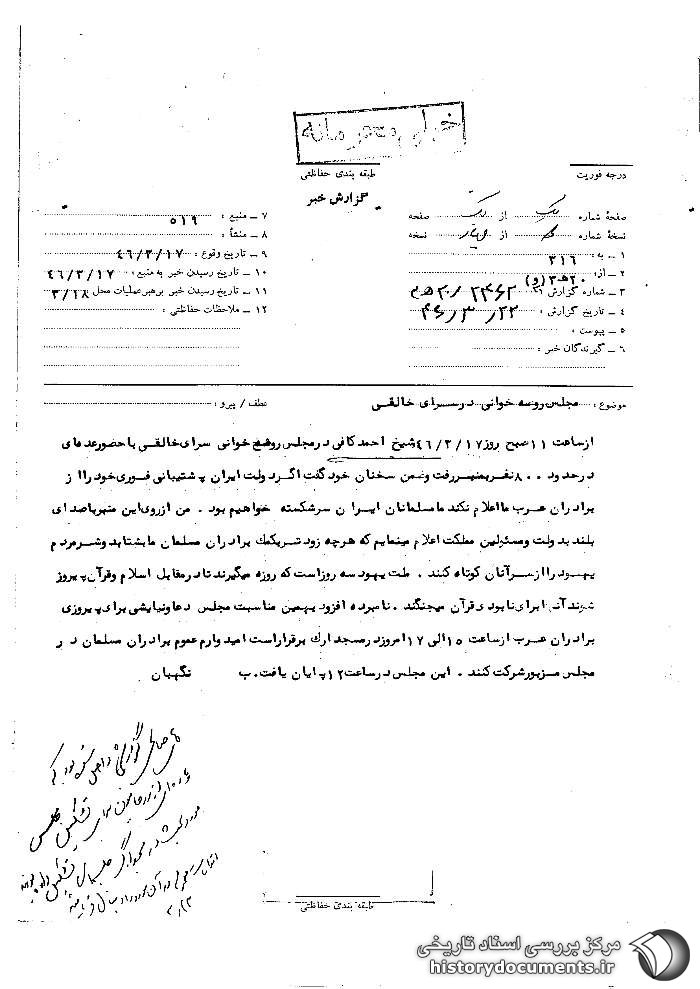 خیلی محرمانه
درجه فوریت
طبقه بندی حفاظتی
گزارش خبر
صفحهٔ شماره یک از یک صفحه
نسخهٔ شماره از چهار نسخه
۱ – به : ۳۱۶
۲ – از : ۲۰ ه‍ ۳ (و)
۳ – شماره گزارش : ۲۴۶۲ / ۲۰ ه‍ ۳
۴ – تاریخ گزارش : ۴۶/۳/۲۲
۵ – پیوست :
۶ – گیرندگان خبر :
۷ – منبع : ۵۱۹
۸ – منشأ :
۹ – تاریخ وقوع : ۴۶/۳/۱۷
۱۰ – تاریخ رسیدن خبر به منبع : ۴۶/۳/۱۷
۱۱ – تاریخ رسیدن خبر برهبر عملیات محل ۳/۱۸
۱۲ – ملاحظات حفاظتی :
موضوع : مجلس روضه خوانی در سرای خالقی
عطف / پیرو :
از ساعت ۱۱ صبح روز ۴۶/۳/۱۷ شیخ احمد کافی در مجلس روضه خوانی سرای خالقی با حضور عده‌ای
در حدود ۸۰۰ نفر بمنبر رفت و ضمن سخنان خود گفت اگر دولت ایران پشتیبانی فوری خود را از
برادران عرب ما اعلام نکند ما مسلمانان ایران سرشکسته خواهیم بود . من از روی این منبر با صدای
بلند بدولت و مسئولین مملکت اعلام مینمایم که هرچه زودتر بکمک برادران مسلمان ما بشتابد و شر مردم
یهود را از سر آنان کوتاه کنند . ملت یهود سه روز است که روزه میگیرند تا در مقابل اسلام و قرآن پیروز
شوند آنها برای نابودی قرآن میجنگند . نامبرده افزود بهمین مناسبت مجلس دعا و نیایشی برای پیروزی
برادران عرب از ساعت ۱۵ الی ۱۷ امروز در مسجد ارک برقرار است امیدوارم عموم برادران مسلمان در
مجلس مزبور شرکت کنند . این مجلس در ساعت ۱۲ پایان یافت. ب نگهبان
گزارش واصل شده بود که
تشکیل مجلس
در مسجد ارک
۳/۲۳
طبقه بندی حفاظتی
مرکز بررسی اسناد تاریخی
historydocuments.ir